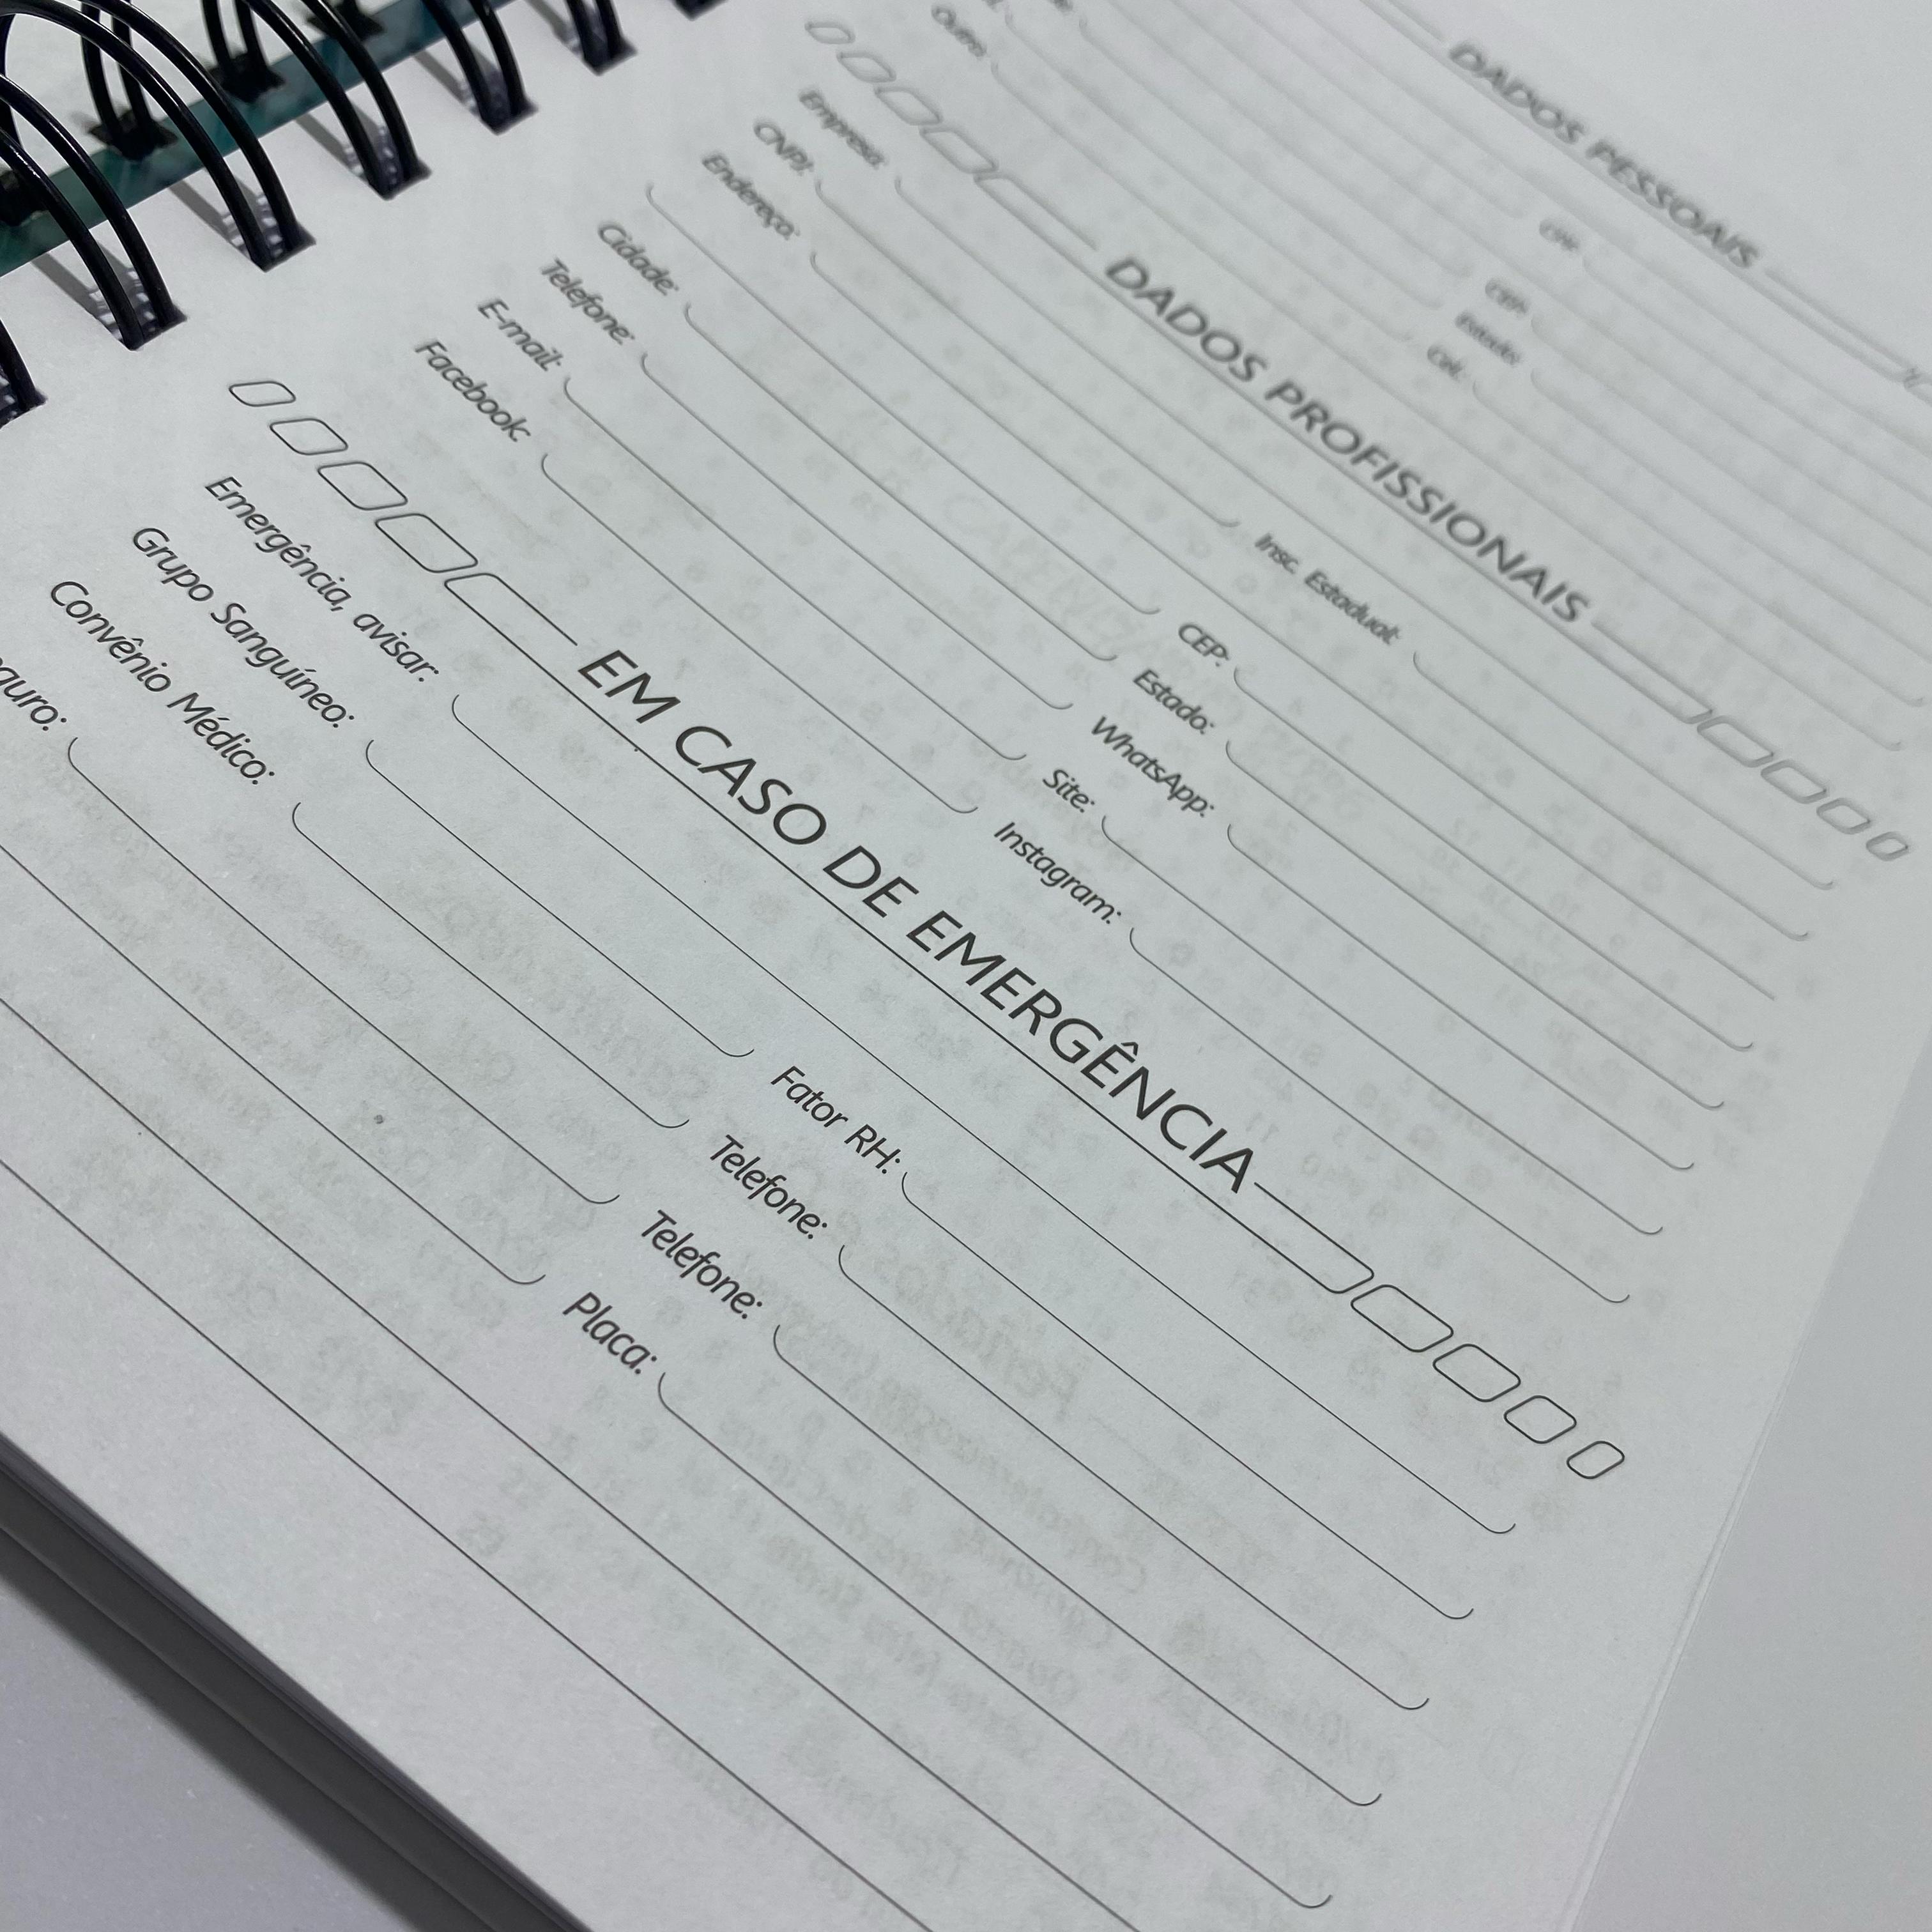 DADOS PESSOAIS
CPF:
CEP:
Estado:
Outro: Cel.:
DADOS PROFISSIONAIS
Empresa:
CNPJ: Insc. Estadual:
Endereço:
CEP:
Cidade: Estado:
Telefone: WhatsApp:
E-mail: Site:
Facebook: Instagram:
EM CASO DE EMERGÊNCIA
Emergência, avisar:
Grupo Sanguíneo: Fator RH:
Convênio Médico: Telefone:
Telefone:
Placa: